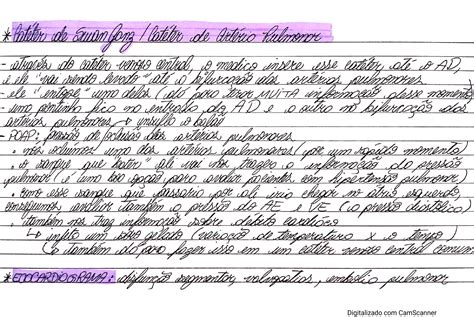 * Catéter de Swan Ganz / Catéter de Artéria Pulmonar
- através do catéter venoso central, o médico insere esse catéter, até o AD,
e ele "vai sendo levado" até a bifurcação das artérias pulmonares
- ele "entope" uma delas (dá para tirar MUITA informação desse momento)
- uma pontinha fica na entrada do AD e a outra na bifurcação das
artérias pulmonares insufla o balão
- POAP: pressão de oclusão das artérias pulmonares
nós ocluímos uma das artérias pulmonares (por um rápido momento)
o sangue que "bater" ali vai nos trazer a informação da pressão
pulmonar (é uma boa opção para avaliar pacientes com hipertensão pulmonar)
como esse sangue que passaria por ali iria chegar no átrio esquerdo,
conseguimos analisar também a pressão do AE e VE (a pressão diastólica)
também nos traz informação sobre débito cardíaco
↳ injeto um soro gelado (variação de temperatura x o tempo)
também dá para fazer isso em um catéter venoso central comum
* ECOCARDIOGRAMA: disfunção segmentar, valvopatias, embolia pulmonar
Digitalizado com CamScanner